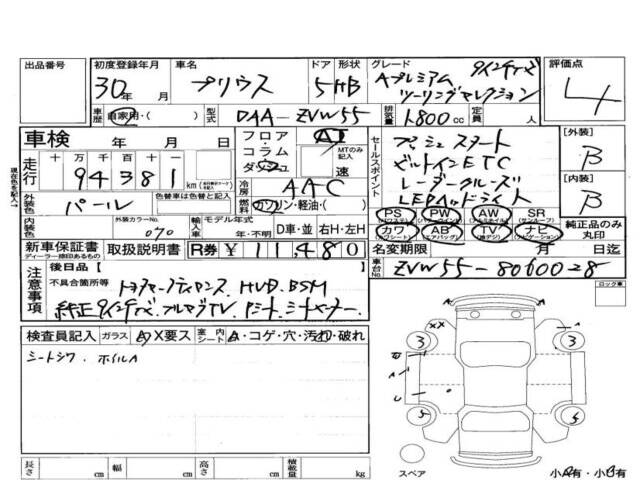 出品番号 初度登録年月 車名 ドア 形状 グレード 評価点
30年 月 プリウス 5HB Aプレミアム 9インチナビ ツーリングセレクション 4
車歴 自家用・( ) 型式 DAA-ZVW55 排気量 1800cc 定員 人
車検 年 月 日 フロア・コラム・ダッシュ AT MTのみ記入 速 セールスポイント プッシュスタート [外装] B
走行 十万千百十一 94381 km 冷房 AAC ビルトインETC [内装] B
現在色を記入→ 外装色 パール 色替車は色替えと元色記入 燃料 ガソリン・軽油・( ) レーダークルーズ LEDヘッドライト
内装色 外装カラーNo. 070 輸入車 モデル年式 年・不明 D車・並 右H・左H PS PW AW SR
カワ AB TV ナビ 純正品のみ丸印
新車保証書 取扱説明書 R券 ¥11,480 名変期限 月 日迄
ディーラー捺印のあるもの
注意事項 後日品 ( ) 車台No. ZVW55-8060028
不具合箇所等 HUD.BSM ロック車
純正9インチナビ.フルセグTV.
検査員記入 ガラス A・X要ス 室内シート A・コゲ・穴・汚れ・破れ
シートシワ. ホイルA
XX 3 3
A
U
5 5
スペア 小A有・小B有
長さ cm 幅 cm 高さ cm 積載量 kg